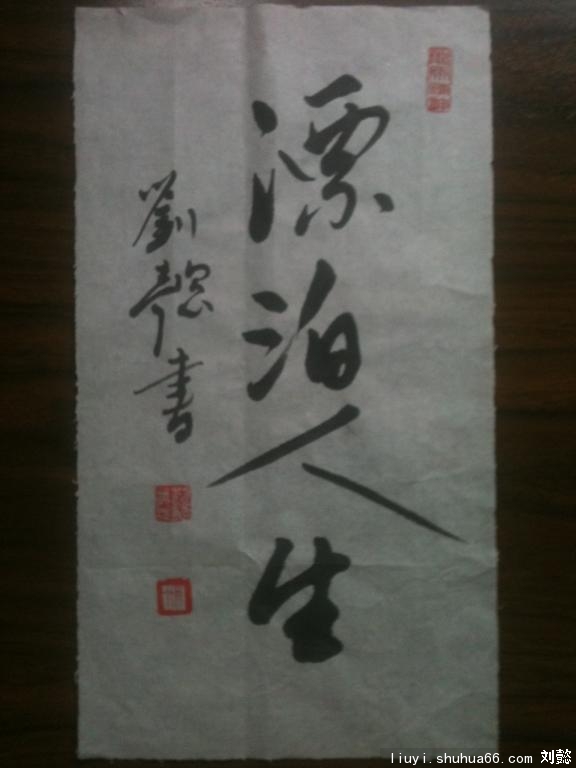 漂泊人生
劉懿書
liuyi.shuhua66.com 刘懿